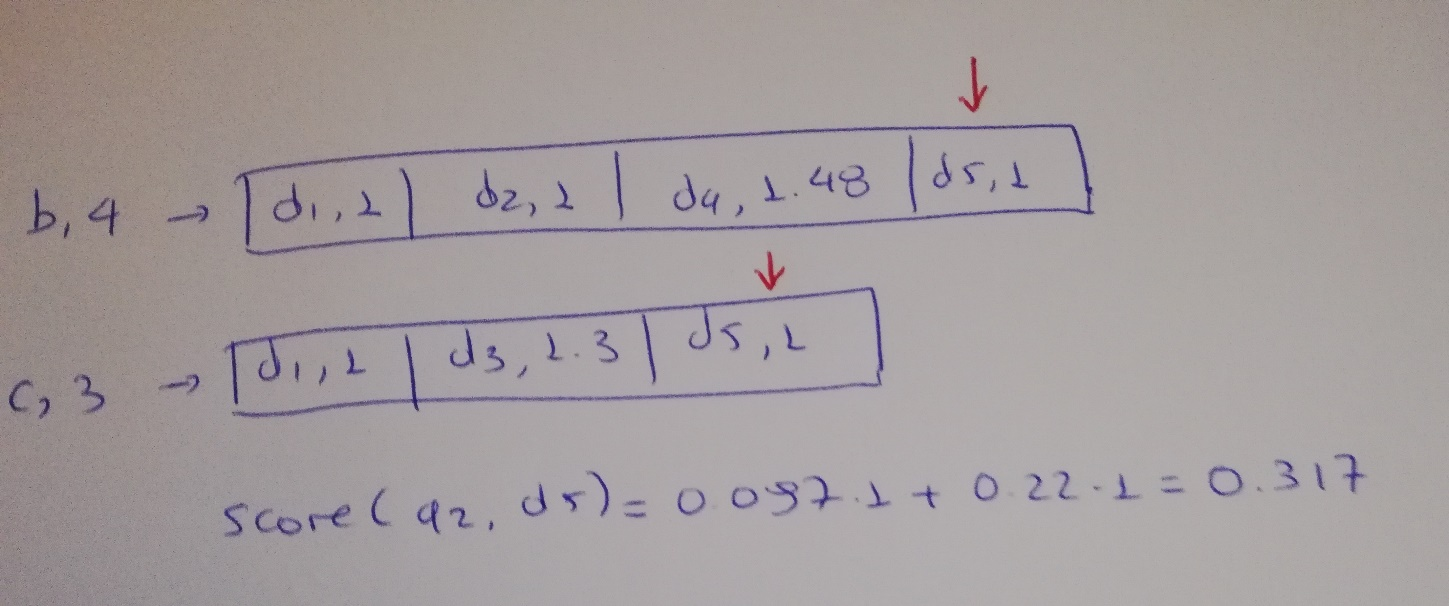 b,4 → | d1,1 | d2,1 | d4,1.48 | d5,1 |
c,3 → | d1,1 | d3,1.3 | d5,1 |
score(q2, d5) = 0.097.1 + 0.22.1 = 0.317